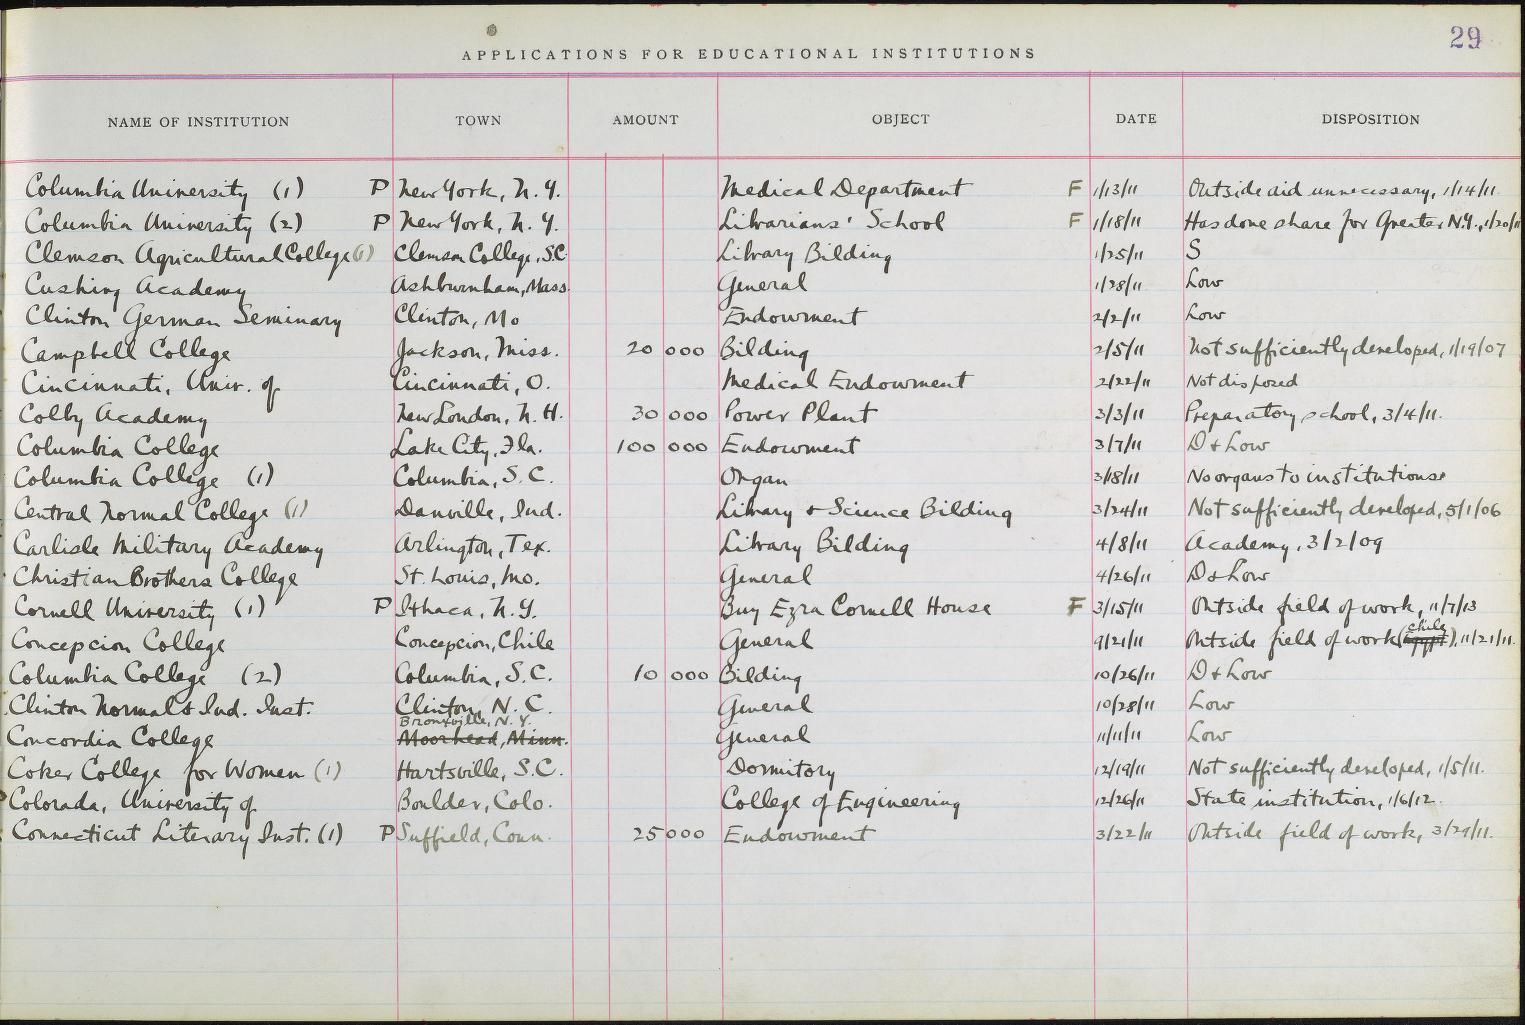 29
APPLICATIONS FOR EDUCATIONAL INSTITUTIONS
NAME OF INSTITUTION TOWN AMOUNT OBJECT DATE DISPOSITION
Columbia University (1) P New York, N.Y. Medical Department F 1/13/11 Outside aid unnecessary, 1/14/11.
Columbia University (2) P New York, N.Y. Librarians' School F 1/18/11 Has done share for Greater N.Y., 1/20/11
Clemson Agricultural College (1) Clemson College, S.C. Library Bilding 1/25/11 S
Cushing Academy Ashburnham, Mass. General 1/28/11 Low
Clinton German Seminary Clinton, Mo General Endowment 2/2/11 Low
Campbell College Jackson, Miss. 20 000 Bilding 2/5/11 Not sufficiently developed, 1/19/07
Cincinnati, Univ. of Cincinnati, O. Medical Endowment 2/22/11 Not disposed
Colby Academy New London, N.H. 30 000 Power Plant 3/3/11 Preparatory school, 3/4/11.
Columbia College Lake City, Fla. 100 000 Endowment 3/7/11 D & Low
Columbia College (1) Columbia, S.C. Organ 3/18/11 No organs to institutions
Central Normal College (1) Danville, Ind. Library & Science Bilding 3/24/11 Not sufficiently developed, 5/1/06
Carlisle Military Academy Arlington, Tex. Library Bilding 4/8/11 Academy, 3/2/09
Christian Brothers College St. Louis, Mo. General 4/26/11 D & Low
Cornell University (1) P Ithaca, N.Y. Buy Ezra Cornell House F 3/15/11 Outside field of work, 11/7/13
Chile
Concepcion College Concepcion, Chile General 9/21/11 Outside field of work (Egypt), 11/21/11.
Columbia College (2) Columbia, S.C. 10 000 Bilding 10/26/11 D & Low
Clinton Normal & Ind. Inst. Clinton, N.C. General 10/28/11 Low
Bronxville, N.Y.
Concordia College Moorhead, Minn. General 11/11/11 Low
Coker College for Women (1) Hartsville, S.C. Dormitory 12/19/11 Not sufficiently developed, 1/5/11.
Colorada, University of Boulder, Colo. College of Engineering 12/26/11 State institution, 1/6/12.
Connecticut Literary Inst. (1) P Suffield, Conn. 25 000 Endowment 3/22/11 Outside field of work, 3/29/11.